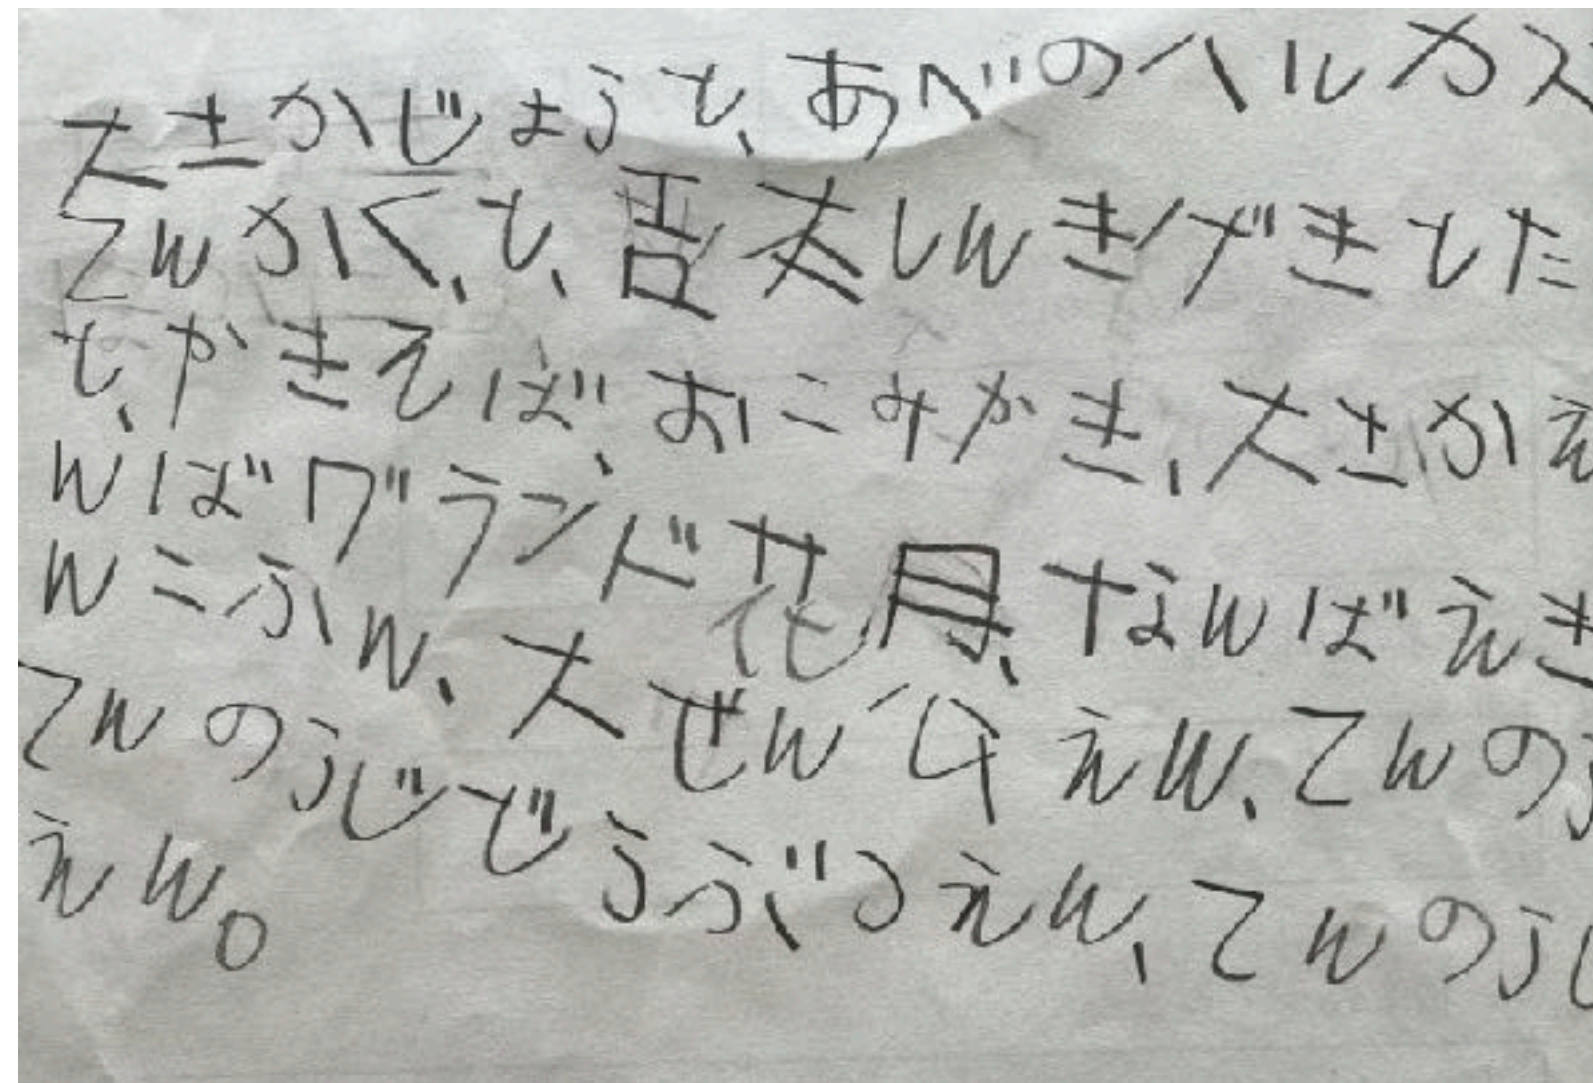 大さかじょうも、あべのハルカス
てんかく、も、吾本しんきげきもした
も、やきそば、おこみやき、大さかえ
んばグランド花月、なんばえき
んこふん、大ぜん
てんのうじどうぶつえん、てんのうじ
えん。